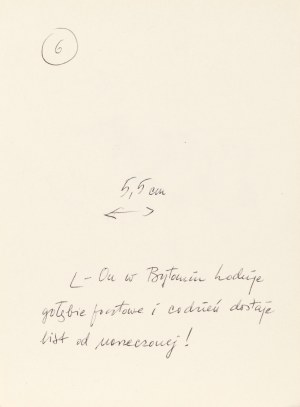 6
5,5 cm
L – On w Bytomiu hoduje
gołębie pocztowe i codzień dostaje
list od narzeczonej!